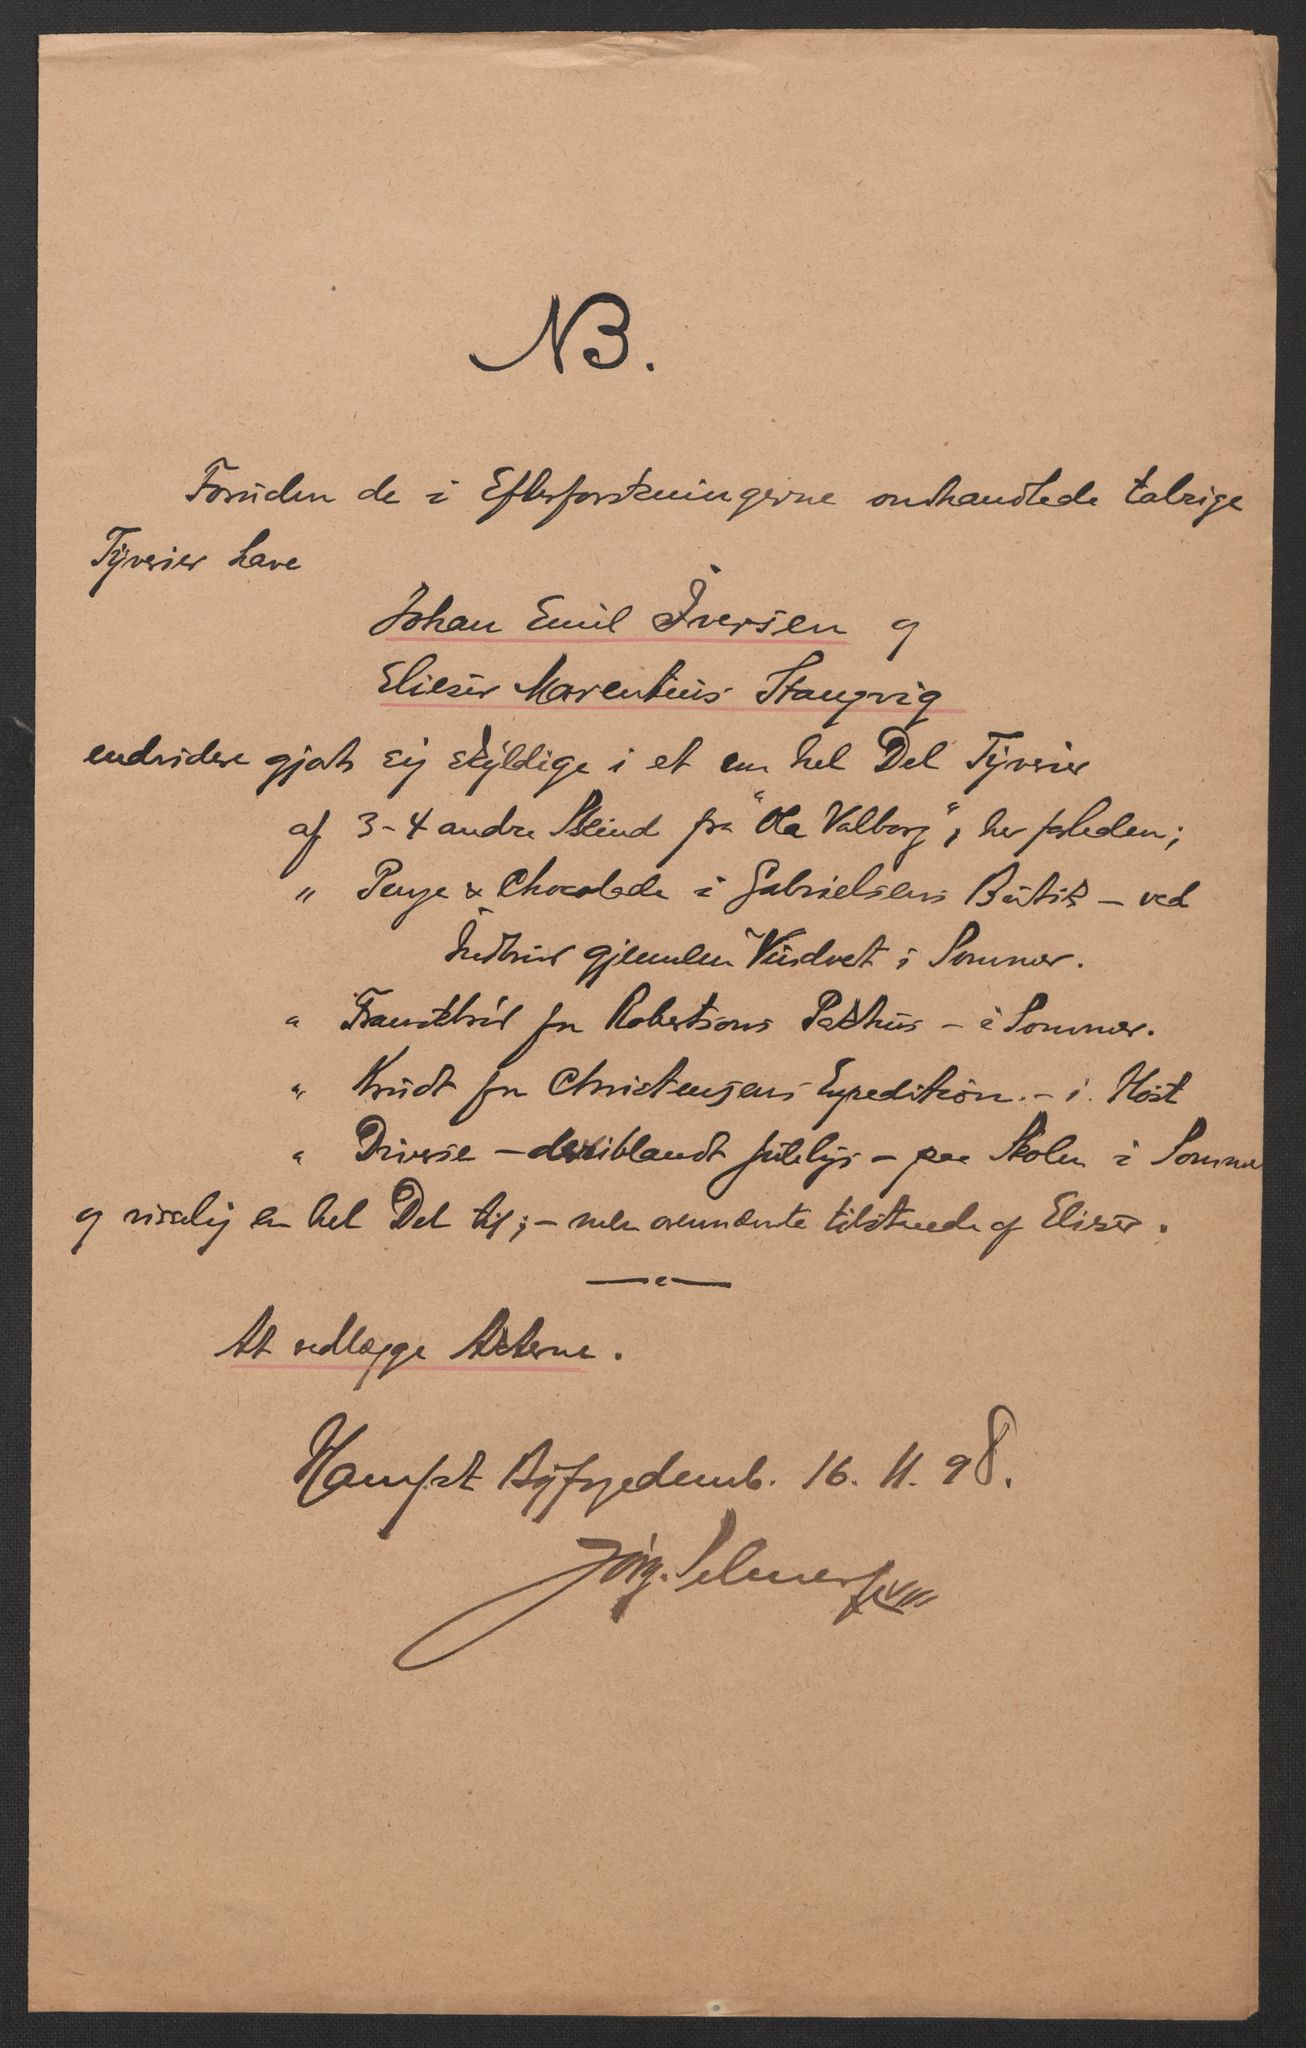 NB.
Foruden de i Efterforskningerne omhandlede talrige
Tyverier have
Johan Emil Iversen og
Elieser Marentius Stangvig
endvidere gjort sig skyldige i et en hel Del Tyverier
af 3-4 andre Skind fra "Ola Valborg", her paa
" Penge & Chocolade i Gabrielsens Butik - ved
Indbrud gjennem Vinduet i Sommer.
" Franskbrød fra Robertsons Pakhus - i Sommer.
" Krudt fra Christensens Expedition. - i Høst
" Diverse - deriblandt Julelys - paa Skolen i Sommer
og visselig en hel Del til; - men ovennævnte tilstaaede af Elieser.
At vedlægge Akterne.
Hamfst Byfogedemb. 16. 11. 98.
Jørg. Selmer